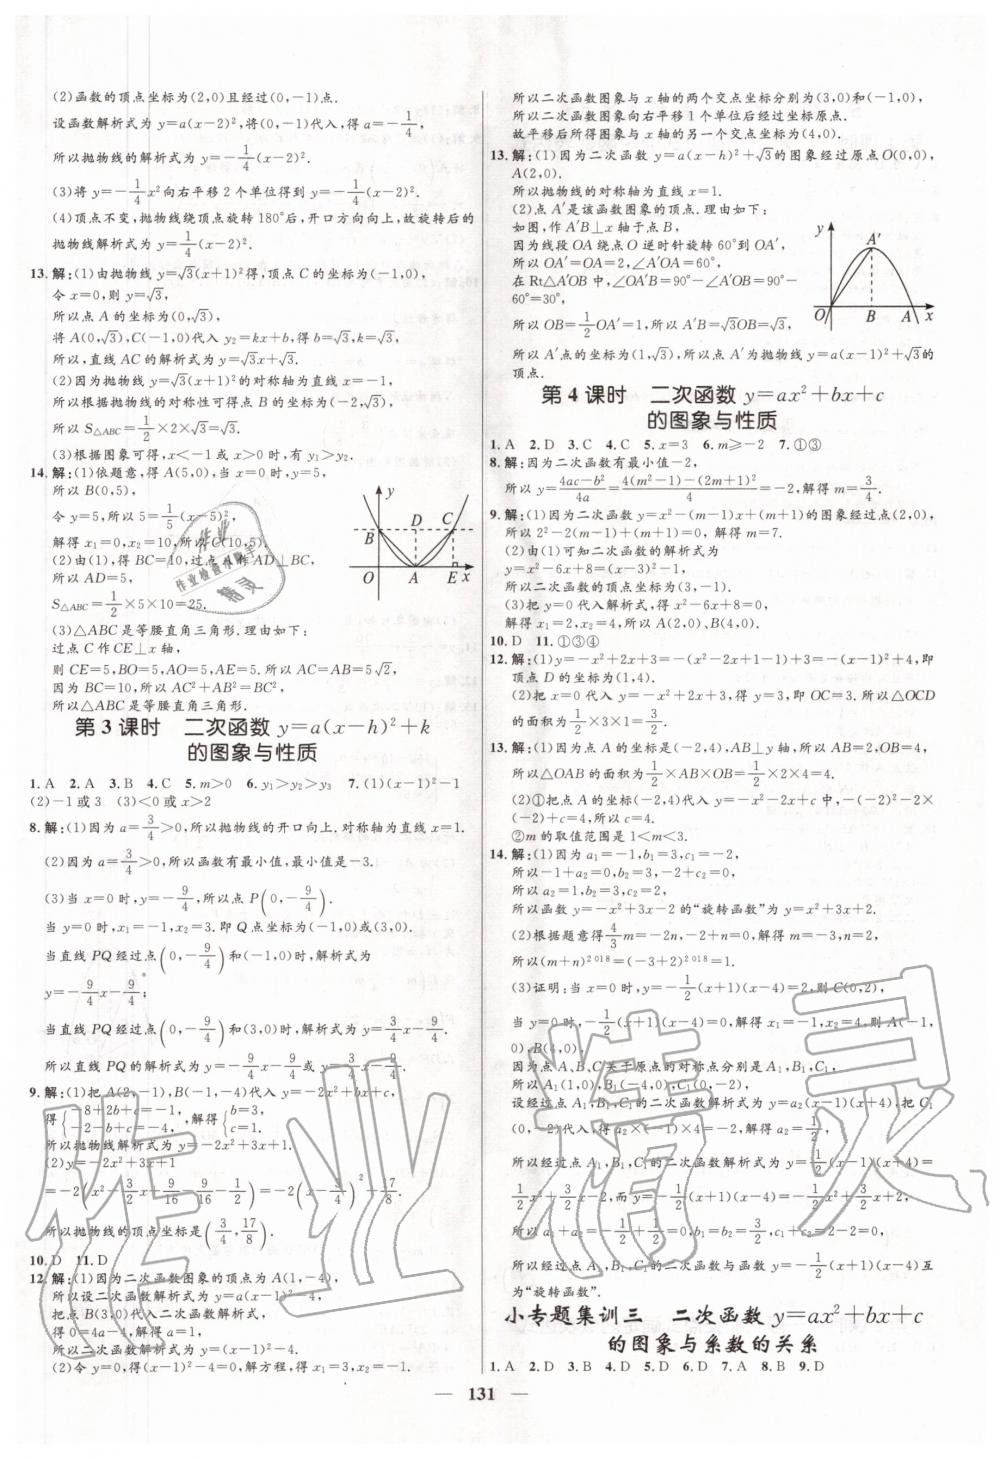 (2)函数的顶点坐标为(2,0)且经过(0,-1)点.
设函数解析式为 y=a(x-2)²,将(0,-1)代入,得 a=-1/4,
所以抛物线的解析式为 y=-1/4(x-2)².
(3)将 y=-1/4x²向右平移2个单位得到 y=-1/4(x-2)².
(4)顶点不变,抛物线绕顶点旋转180°后,开口方向向上,故旋转后的
抛物线解析式为 y=1/4(x-2)².
13.解:(1)由抛物线 y=√3(x+1)²得,顶点C的坐标为(-1,0),
令 x=0,则 y=√3,
所以点A的坐标为(0,√3),
将A(0,√3),C(-1,0)代入 y₂=kx+b,得 b=√3,k=√3,
所以,直线AC的解析式为 y=√3x+√3.
(2)因为抛物线 y=√3(x+1)²的对称轴为直线 x=-1,
所以根据抛物线的对称性可得点B的坐标为(-2,√3),
所以 S△ABC=1/2×2×√3=√3.
(3)根据图象可得,x<-1或 x>0时,有 y₁>y₂.
14.解:(1)依题意,得A(5,0),当 x=0时,y=5,
所以B(0,5),
令 y=5,所以5=1/5(x-5)²,
解得 x₁=0,x₂=10,所以C(10,5).
(2)由(1),得BC=10,过点A作AD⊥BC,
所以AD=5,
S△ABC=1/2×5×10=25.
(3)△ABC是等腰直角三角形.理由如下:
过点C作CE⊥x轴,
则CE=5,BO=5,AO=5,AE=5.所以AC=AB=5√2,
因为BC=10,所以AC²+AB²=BC²,
所以△ABC是等腰直角三角形.
y
B D C
O A E x
第3课时 二次函数 y=a(x-h)²+k
的图象与性质
1.A 2.A 3.B 4.C 5.m>0 6.y₁>y₂>y₃ 7.(1)(x-1)²-1
(2)-1或3 (3)<0或x>2
8.解:(1)因为 a=3/4>0,所以抛物线的开口向上.对称轴为直线 x=1.
(2)因为 a=3/4>0,所以函数有最小值,最小值是-3.
(3)当 x=0时,y=-9/4,所以点P(0,-9/4).
当 y=0时,x₁=-1,x₂=3.即Q点坐标为(-1,0)或(3,0).
当直线PQ经过点(0,-9/4)和(-1,0)时,解析式为
y=-9/4x-9/4;
当直线PQ经过点(0,-9/4)和(3,0)时,解析式为 y=3/4x-9/4.
所以直线PQ的解析式为 y=-9/4x-9/4或 y=3/4x-9/4.
9.解:(1)把A(2,-1),B(-1,-4)代入 y=-2x²+bx+c,
得{-8+2b+c=-1, -2-b+c=-4,解得{b=3, c=1.
所以抛物线解析式为 y=-2x²+3x+1.
(2)y=-2x²+3x+1
=-2(x²-3/2x+9/16-9/16-1/2)=-2(x-3/4)²+17/8.
所以抛物线的顶点坐标是(3/4,17/8).
10.D 11.D
12.解:(1)因为二次函数图象的顶点为A(1,-4),
所以设二次函数解析式为 y=a(x-1)²-4,
把点B(3,0)代入二次函数解析式,
得0=4a-4,解得 a=1,
所以二次函数解析式为 y=(x-1)²-4.
(2)令 y=0,得(x-1)²-4=0,解方程,得 x₁=3,x₂=-1.
所以二次函数图象与 x轴的两个交点坐标分别为(3,0)和(-1,0).
所以二次函数图象向右平移1个单位后经过坐标原点.
故平移后所得图象与 x轴的另一个交点坐标为(4,0).
13.解:(1)因为二次函数 y=a(x-h)²+√3的图象经过原点O(0,0),
A(2,0).
所以抛物线的对称轴为直线 x=1.
(2)点A′是该函数图象的顶点.理由如下:
如图,作A′B⊥x轴于点B,
因为线段OA绕点O逆时针旋转60°到OA′,
所以OA′=OA=2,∠A′OA=60°,
在Rt△A′OB中,∠OA′B=90°-∠A′OB=90°-
60°=30°,
所以OB=1/2OA′=1,所以A′B=√3OB=√3,
所以A′点的坐标为(1,√3),所以点A′为抛物线 y=a(x-1)²+√3的
顶点.
y
A′
O B A x
第4课时 二次函数 y=ax²+bx+c
的图象与性质
1.A 2.D 3.C 4.C 5.x=3 6.m≥-2 7.①③
8.解:因为二次函数有最小值-2,
所以 y=(4ac-b²)/4a=(4(m²-1)-(2m+1)²)/4=-2,解得 m=3/4.
9.解:(1)因为二次函数 y=x²-(m-1)x+(m+1)的图象经过点(2,0),
所以2²-2(m-1)+(m+1)=0,解得 m=7.
(2)由(1)可知二次函数的解析式为
y=x²-6x+8=(x-3)²-1.
所以二次函数的顶点坐标为(3,-1).
(3)把 y=0代入解析式,得 x²-6x+8=0,
解得 x₁=2,x₂=4,所以A(2,0)、B(4,0).
10.D 11.①③④
12.解:(1)y=-x²+2x+3=-(x²-2x+1-1)+3=-(x-1)²+4,即
顶点D的坐标为(1,4).
(2)把 x=0代入 y=-x²+2x+3,得 y=3,即OC=3.所以△OCD
的面积为1/2×3×1=3/2.
13.解:(1)因为点A的坐标是(-2,4),AB⊥y轴,所以AB=2,OB=4,
所以△OAB的面积为1/2×AB×OB=1/2×2×4=4.
(2)①把点A的坐标(-2,4)代入 y=-x²-2x+c中,-(-2)²-2×
(-2)+c=4,所以c=4.
②m的取值范围是1<m<3.
14.解:(1)因为 a₁=-1,b₁=3,c₁=-2,
所以-1+a₂=0,b₂=3,-2+c₂=0,
所以 a₂=1,b₂=3,c₂=2,
所以函数 y=-x²+3x-2的“旋转函数”为 y=x²+3x+2.
(2)根据题意得4/3m=-2n,-2+n=0,解得 m=-3,n=2,
所以(m+n)²⁰¹⁸=(-3+2)²⁰¹⁸=1.
(3)证明:当 x=0时,y=-1/2(x+1)(x-4)=2,则C(0,2),
当 y=0时,-1/2(x+1)(x-4)=0,解得 x₁=-1,x₂=4,则A(-1,
0),B(4,0),
因为点A,B,C关于原点的对称点分别是A₁,B₁,C₁,
所以A₁(1,0),B₁(-4,0),C₁(0,-2),
设经过点A₁,B₁,C₁的二次函数解析式为 y=a₂(x-1)(x+4),把C₁
(0,-2)代入得 a₂×(-1)×4=-2,解得 a₂=1/2,
所以经过点A₁,B₁,C₁的二次函数解析式为 y=1/2(x-1)(x+4)=
1/2x²+3/2x-2,而 y=-1/2(x+1)(x-4)=-1/2x²+3/2x+2,
所以 a₁+a₂=-1/2+1/2=0,b₁=b₂=3/2,c₁+c₂=2-2=0,
所以经过点A₁,B₁,C₁的二次函数与函数 y=-1/2(x+1)(x-4)互
为“旋转函数”.
小专题集训三 二次函数 y=ax²+bx+c
的图象与系数的关系
1.A 2.D 3.B 4.C 5.D 6.D 7.A 8.B 9.D
131
作业精灵
作业检查小助手
精灵